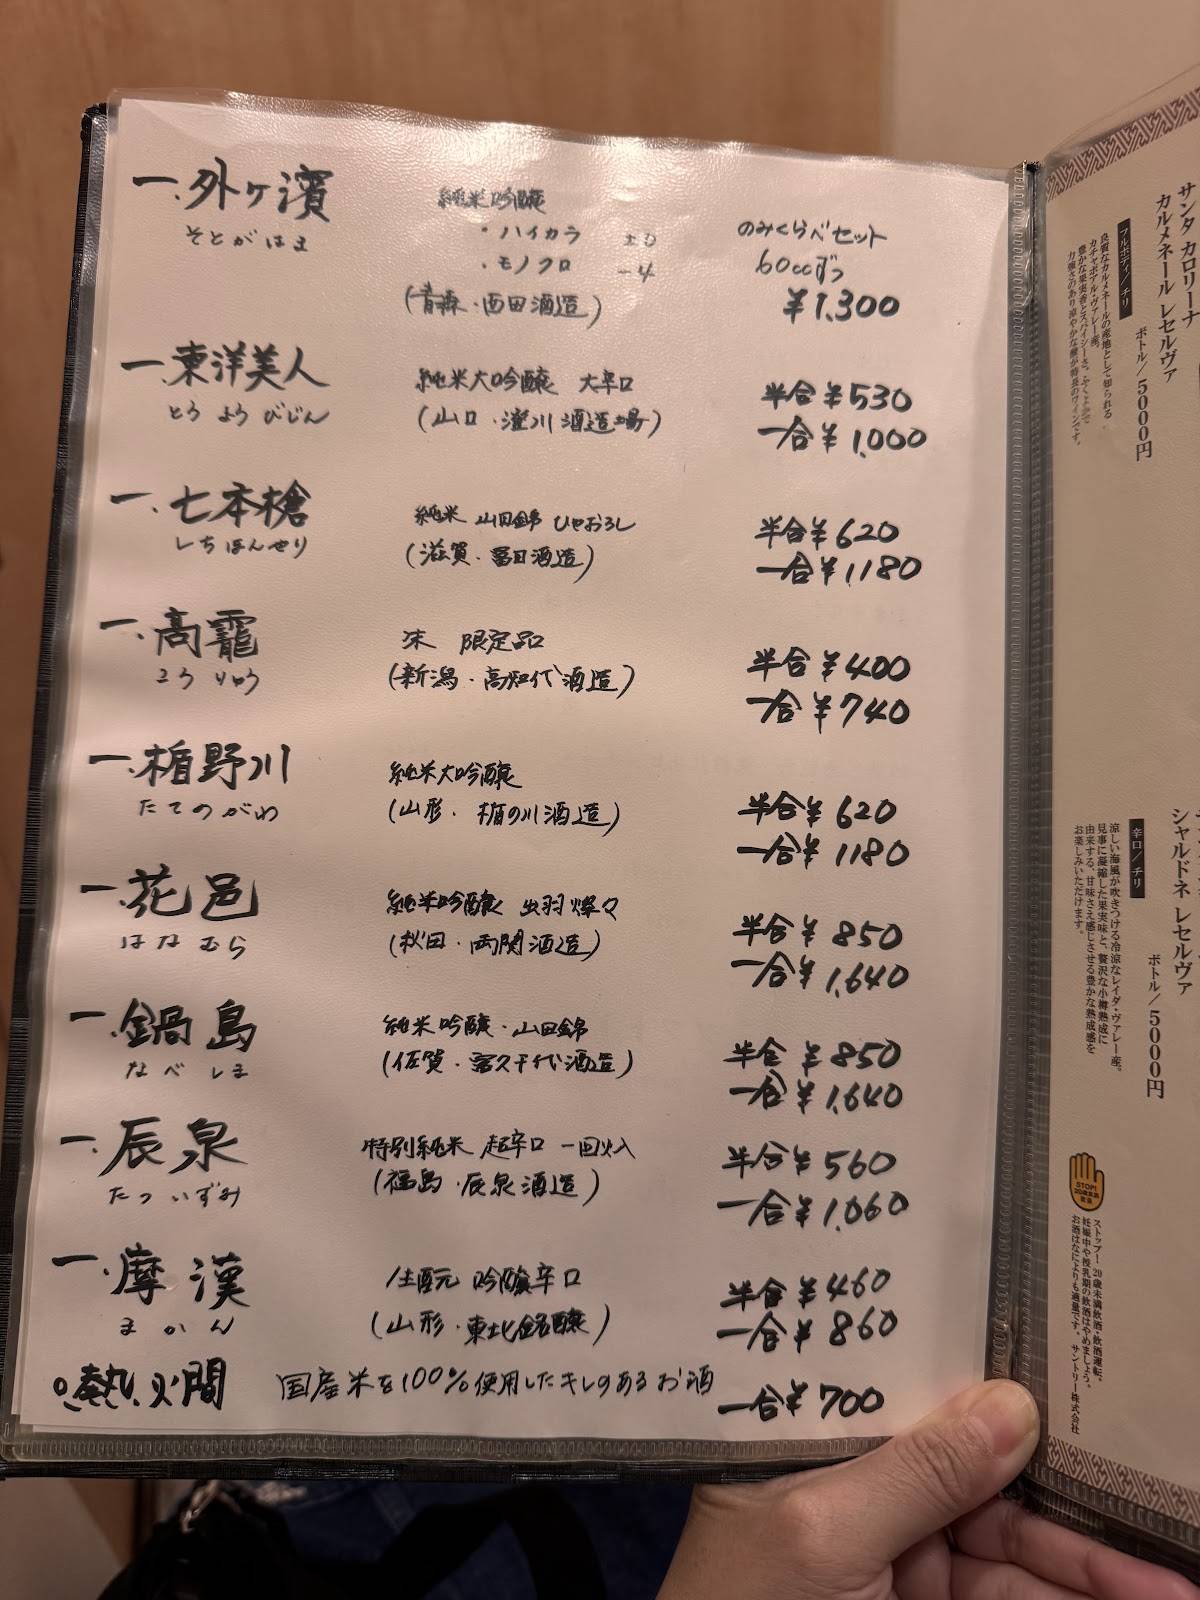 一、外ヶ濱
そとがはま
純米吟醸
・ハイカラ ±0
・モノクロ -4
(青森・西田酒造)
のみくらべセット
60ccずつ
¥1,300
一、東洋美人
とうようびじん
純米大吟醸 大辛口
(山口・澄川酒造場)
半合¥530
一合¥1,000
一、七本槍
しちほんやり
純米 山田錦 ひやおろし
(滋賀・冨田酒造)
半合¥620
一合¥1180
一、高龗
こうりゅう
限定品
(新潟・高知代酒造)
半合¥400
一合¥740
一、楯野川
たてのがわ
純米大吟醸
(山形・楯の川酒造)
半合¥620
一合¥1180
一、花邑
はなむら
純米吟醸 出羽燦々
(秋田・両関酒造)
半合¥850
一合¥1,640
一、鍋島
なべしま
純米吟醸・山田錦
(佐賀・富久千代酒造)
半合¥850
一合¥1,640
一、辰泉
たついずみ
特別純米 超辛口 一回火入
(福島・辰泉酒造)
半合¥560
一合¥1,060
一、摩漢
まかん
生酛 吟醸辛口
(山形・東北銘醸)
半合¥460
一合¥860
○熱燗
国産米を100%使用したキレのあるお酒
一合¥700
サンタ カロリーナ
カルメネール レセルヴァ
ボトル/5000円
フルボディ/チリ
良質なカルメネールの産地として知られる
カチャポアル・ヴァレー産。
豊かな果実香とスパイシーさ、ふくよかで
力強さのあり涼やかな酸が特長のワインです。
シャルドネ レセルヴァ
ボトル/5000円
辛口/チリ
涼しい海風が吹きつける冷涼なレイダ・ヴァレー産。
見事に凝縮した果実味と、贅沢な小樽熟成に
由来する、甘味さえ感じさせる豊かな熟成感を
お楽しみいただけます。
STOP!
20歳未満
飲酒
ストップ! 20歳未満飲酒・飲酒運転。
妊娠中や授乳期の飲酒はやめましょう。
お酒はなによりも適量です。サントリー株式会社